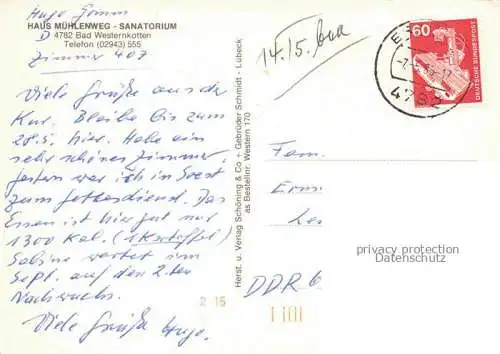 Hugo
HAUS MÜHLENWEG - SANATORIUM
D 4782 Bad Westernkotten
Telefon (02943) 555
Zimmer 407
Viele Grüße aus der
Kur. Bleibe bis zum
28.5. hier. Habe ein
sehr schönes Zimmer.
gestern war ich in Soest
zum Gottesdienst. Das
Essen ist hier gut nur
1300 Kal. (1 Kartoffel)
Sabine wartet im
Sept. auf den 2.ten
Nachwuchs.
Viele Grüße Hugo.
2 15
Herst. u. Verlag Schöning & Co + Gebrüder Schmidt - Lübeck
as Bestellnr. Western 170
14.15.
60
DEUTSCHE BUNDESPOST
4782
Fam.
DDR 6
privacy protection
Datenschutz